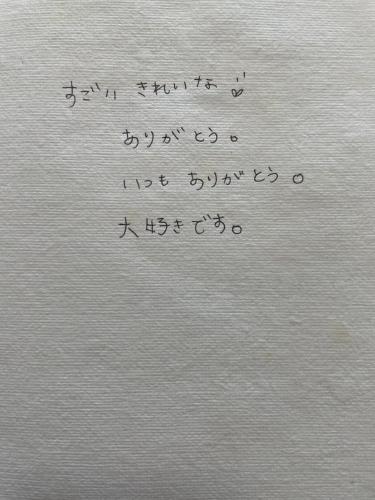 すごい きれいな
ありがとう。
いつも ありがとう。
大好きです。